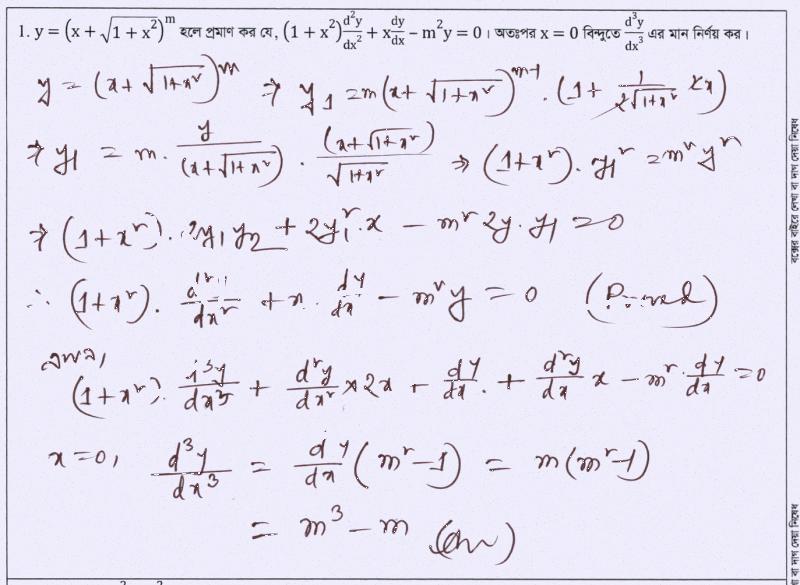 1. y = (x + √(1 + x²))^m হলে প্রমাণ কর যে, (1 + x²) d²y/dx² + x dy/dx − m²y = 0 । অতঃপর x = 0 বিন্দুতে d³y/dx³ এর মান নির্ণয় কর ।
y = (x + √(1+x²))^m ⇒ y₁ = m(x + √(1+x²))^(m-1) . (1 + 1/(2√(1+x²)) × 2x)
⇒ y₁ = m . y/(x+√(1+x²)) . (x+√(1+x²))/√(1+x²) ⇒ (1+x²) . y₁² = m²y²
⇒ (1+x²) . 2y₁y₂ + 2y₁² . x − m² 2y . y₁ = 0
∴ (1+x²) . d²y/dx² + x . dy/dx − m²y = 0 (Proved)
এখন,
(1+x²) . d³y/dx³ + d²y/dx² × 2x + dy/dx . + d²y/dx x − m² . dy/dx = 0
x = 0, d³y/dx³ = dy/dx (m² − 1) = m(m² − 1)
= m³ − m (Ans)
বক্সের বাইরে লেখা বা দাগ দেয়া নিষেধ
বা দাগ দেয়া নিষেধ